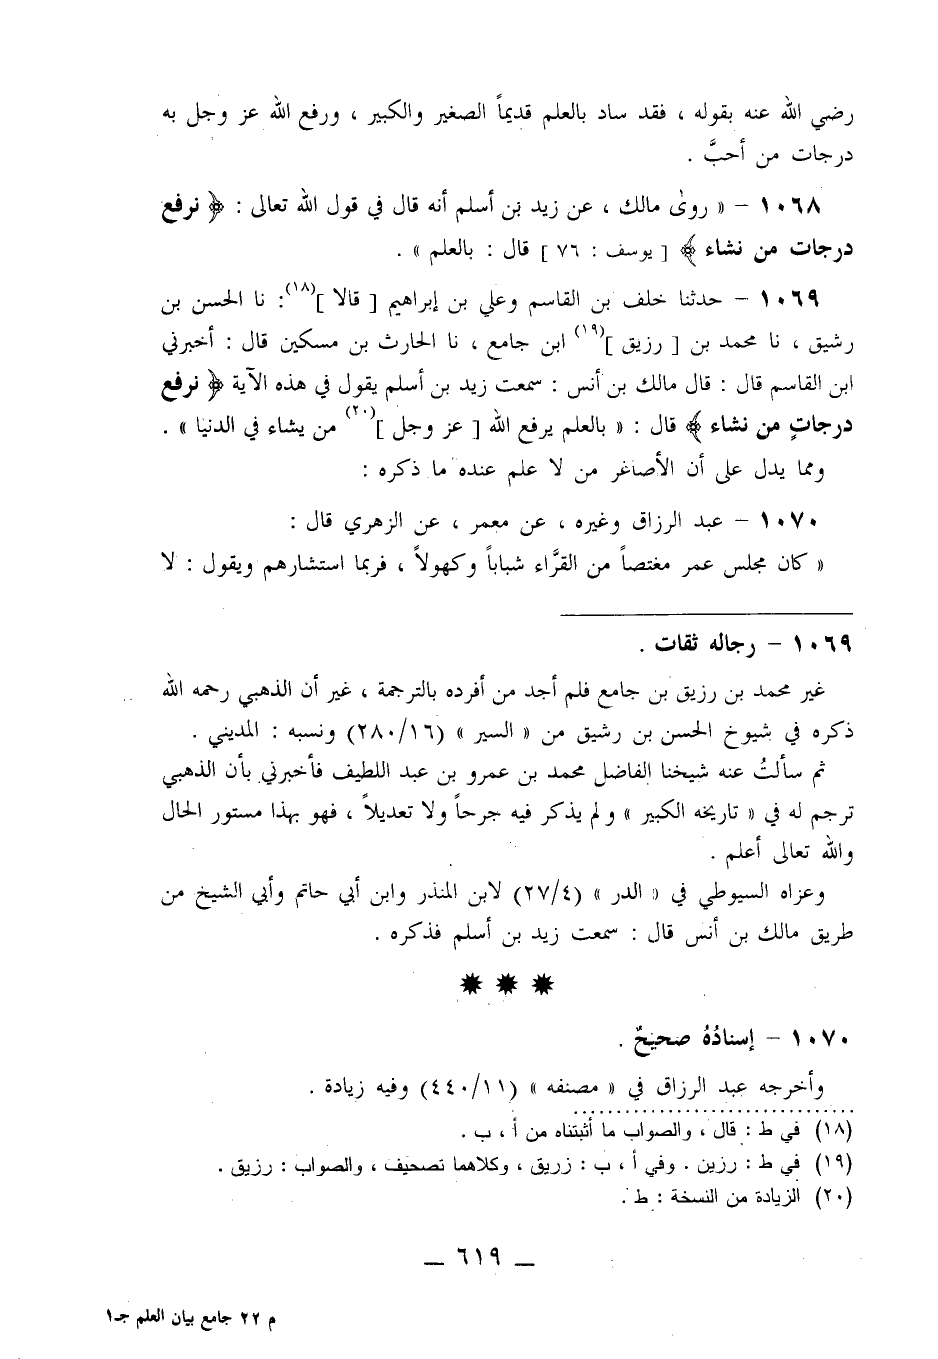 رضي الله عنه بقوله ، فقد ساد بالعلم قديماً الصغير والكبير ، ورفع الله عز وجل به
درجات من أحبَّ .
١٠٦٨ – « روىٰ مالك ، عن زيد بن أسلم أنه قال في قول الله تعالى : ﴿ نرفع
درجات من نشاء ﴾ [ يوسف : ٧٦ ] قال : بالعلم » .
١٠٦٩ – حدثنا خلف بن القاسم وعلي بن إبراهيم [ قالا ](١٨): نا الحسن بن
رشيق ، نا محمد بن [ رزيق ](١٩) ابن جامع ، نا الحارث بن مسكين قال : أخبرني
ابن القاسم قال : قال مالك بن أنس : سمعت زيد بن أسلم يقول في هذه الآية ﴿ نرفع
درجاتٍ من نشاء ﴾ قال : « بالعلم يرفع الله [ عز وجل ](٢٠) من يشاء في الدنيا » .
ومما يدل على أن الأصاغر من لا علم عنده ما ذكره :
١٠٧٠ – عبد الرزاق وغيره ، عن معمر ، عن الزهري قال :
« كان مجلس عمر مغتصاً من القرَّاء شباباً وكهولاً ، فربما استشارهم ويقول : لا
١٠٦٩ – رجاله ثقات .
غير محمد بن رزيق بن جامع فلم أجد من أفرده بالترجمة ، غير أن الذهبي رحمه الله
ذكره في شيوخ الحسن بن رشيق من « السير » (٢٨٠/١٦) ونسبه : المديني .
ثم سألتُ عنه شيخنا الفاضل محمد بن عمرو بن عبد اللطيف فأخبرني بأن الذهبي
ترجم له في « تاريخه الكبير » ولم يذكر فيه جرحاً ولا تعديلاً ، فهو بهذا مستور الحال
والله تعالى أعلم .
وعزاه السيوطي في « الدر » (٢٧/٤) لابن المنذر وابن أبي حاتم وأبي الشيخ من
طريق مالك بن أنس قال : سمعت زيد بن أسلم فذكره .
١٠٧٠ – إسنادُهُ صحيحٌ .
وأخرجه عبد الرزاق في « مصنفه » (٤٤٠/١١) وفيه زيادة .
(١٨) في ط : قال ، والصواب ما أثبتناه من أ ، ب .
(١٩) في ط : رزين . وفي أ ، ب : زريق ، وكلاهما تصحيف ، والصواب : رزيق .
(٢٠) الزيادة من النسخة : ط .
– ٦١٩ –
م ٢٢ جامع بيان العلم جـ١